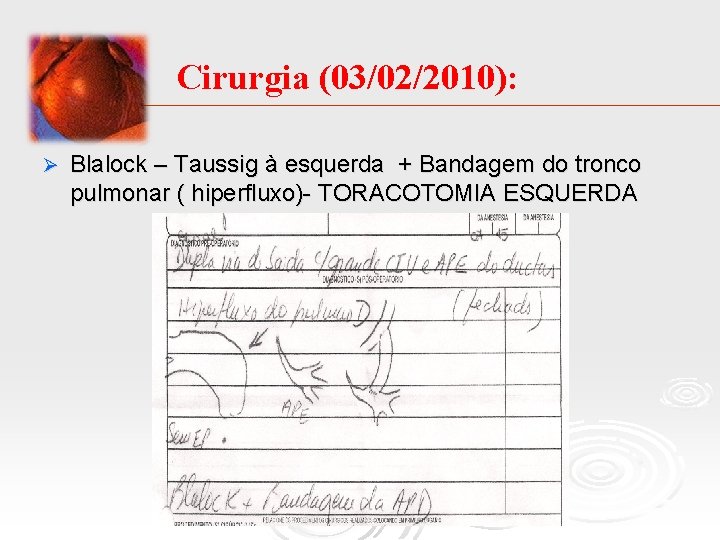 Cirurgia (03/02/2010):
Ø Blalock – Taussig à esquerda + Bandagem do tronco
pulmonar ( hiperfluxo)- TORACOTOMIA ESQUERDA
DA ANESTESIA DA ANESTESIA
DIAGNÓSTICO PRÉ-OPERATÓRIO
Dupla via d Saida c/ grande CIV e APE do ductus
DIAGNÓSTICO(S) PÓS-OPERATÓRIO
Hiperfluxo do pulmão D (fechado)
APE
Sem EP.
Blalock + Bandagem da APD